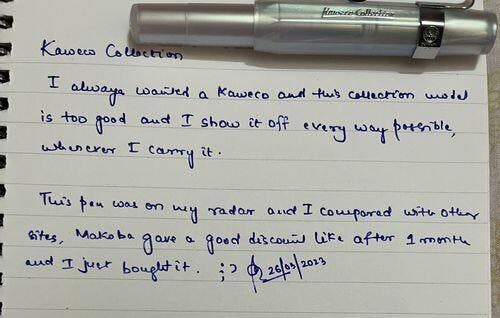 Kaweco Collection
Kaweco Collection
I always wanted a Kaweco and this collection model
is too good and I show it off every way possible,
wherever I carry it.
This pen was on my radar and I compared with other
sites, Makoba gave a good discount like after 1 month
and I just bought it. ;-)
26/05/2023